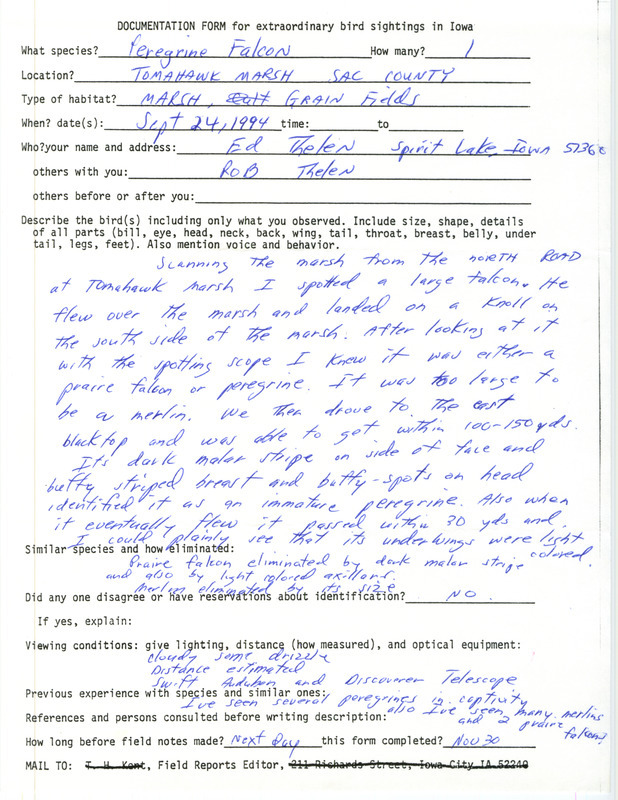 DOCUMENTATION FORM for extraordinary bird sightings in Iowa
What species? Peregrine Falcon How many? 1
Location? TOMAHAWK MARSH SAC COUNTY
Type of habitat? MARSH, GRAIN Fields
When? date(s): Sept 24, 1994 time: to
Who?your name and address: Ed Thelen Spirit Lake, Iowa 5136
others with you: ROB Thelen
others before or after you:
Describe the bird(s) including only what you observed. Include size, shape, details
of all parts (bill, eye, head, neck, back, wing, tail, throat, breast, belly, under
tail, legs, feet). Also mention voice and behavior.
Scanning the marsh from the north ROAD
at Tomahawk marsh I spotted a large falcon. He
flew over the marsh and landed on a knoll on
the south side of the marsh. After looking at it
with the spotting scope I knew it was either a
praire falcon or peregrine. It was too large to
be a merlin. We then drove to the east
blacktop and was able to get within 100-150 yds.
Its dark malar stripe on side of face and
buffy striped breast and buffy-spots on head
identified it as an immature peregrine. Also when
it eventually flew it passed within 30 yds and
I could plainly see that its underwings were light
colored.
Similar species and how eliminated:
Praire falcon eliminated by dark malar stripe
and also by light colored axillars.
Merlin eliminated by its size
Did any one disagree or have reservations about identification? NO
If yes, explain:
Viewing conditions: give lighting, distance (how measured), and optical equipment:
cloudy some drizzle
Distance estimated
Swift Audubon and Discoverer Telescope
Previous experience with species and similar ones:
I've seen several peregrines in captivity
also I've seen many merlins
and 2 praire
falcons
References and persons consulted before writing description:
How long before field notes made? Next Day this form completed? Nov 30
MAIL TO: T. H. Kent, Field Reports Editor, 211 Richards Street, Iowa City, IA 52240